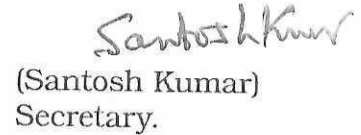 Santosh Kumar
(Santosh Kumar)
Secretary.